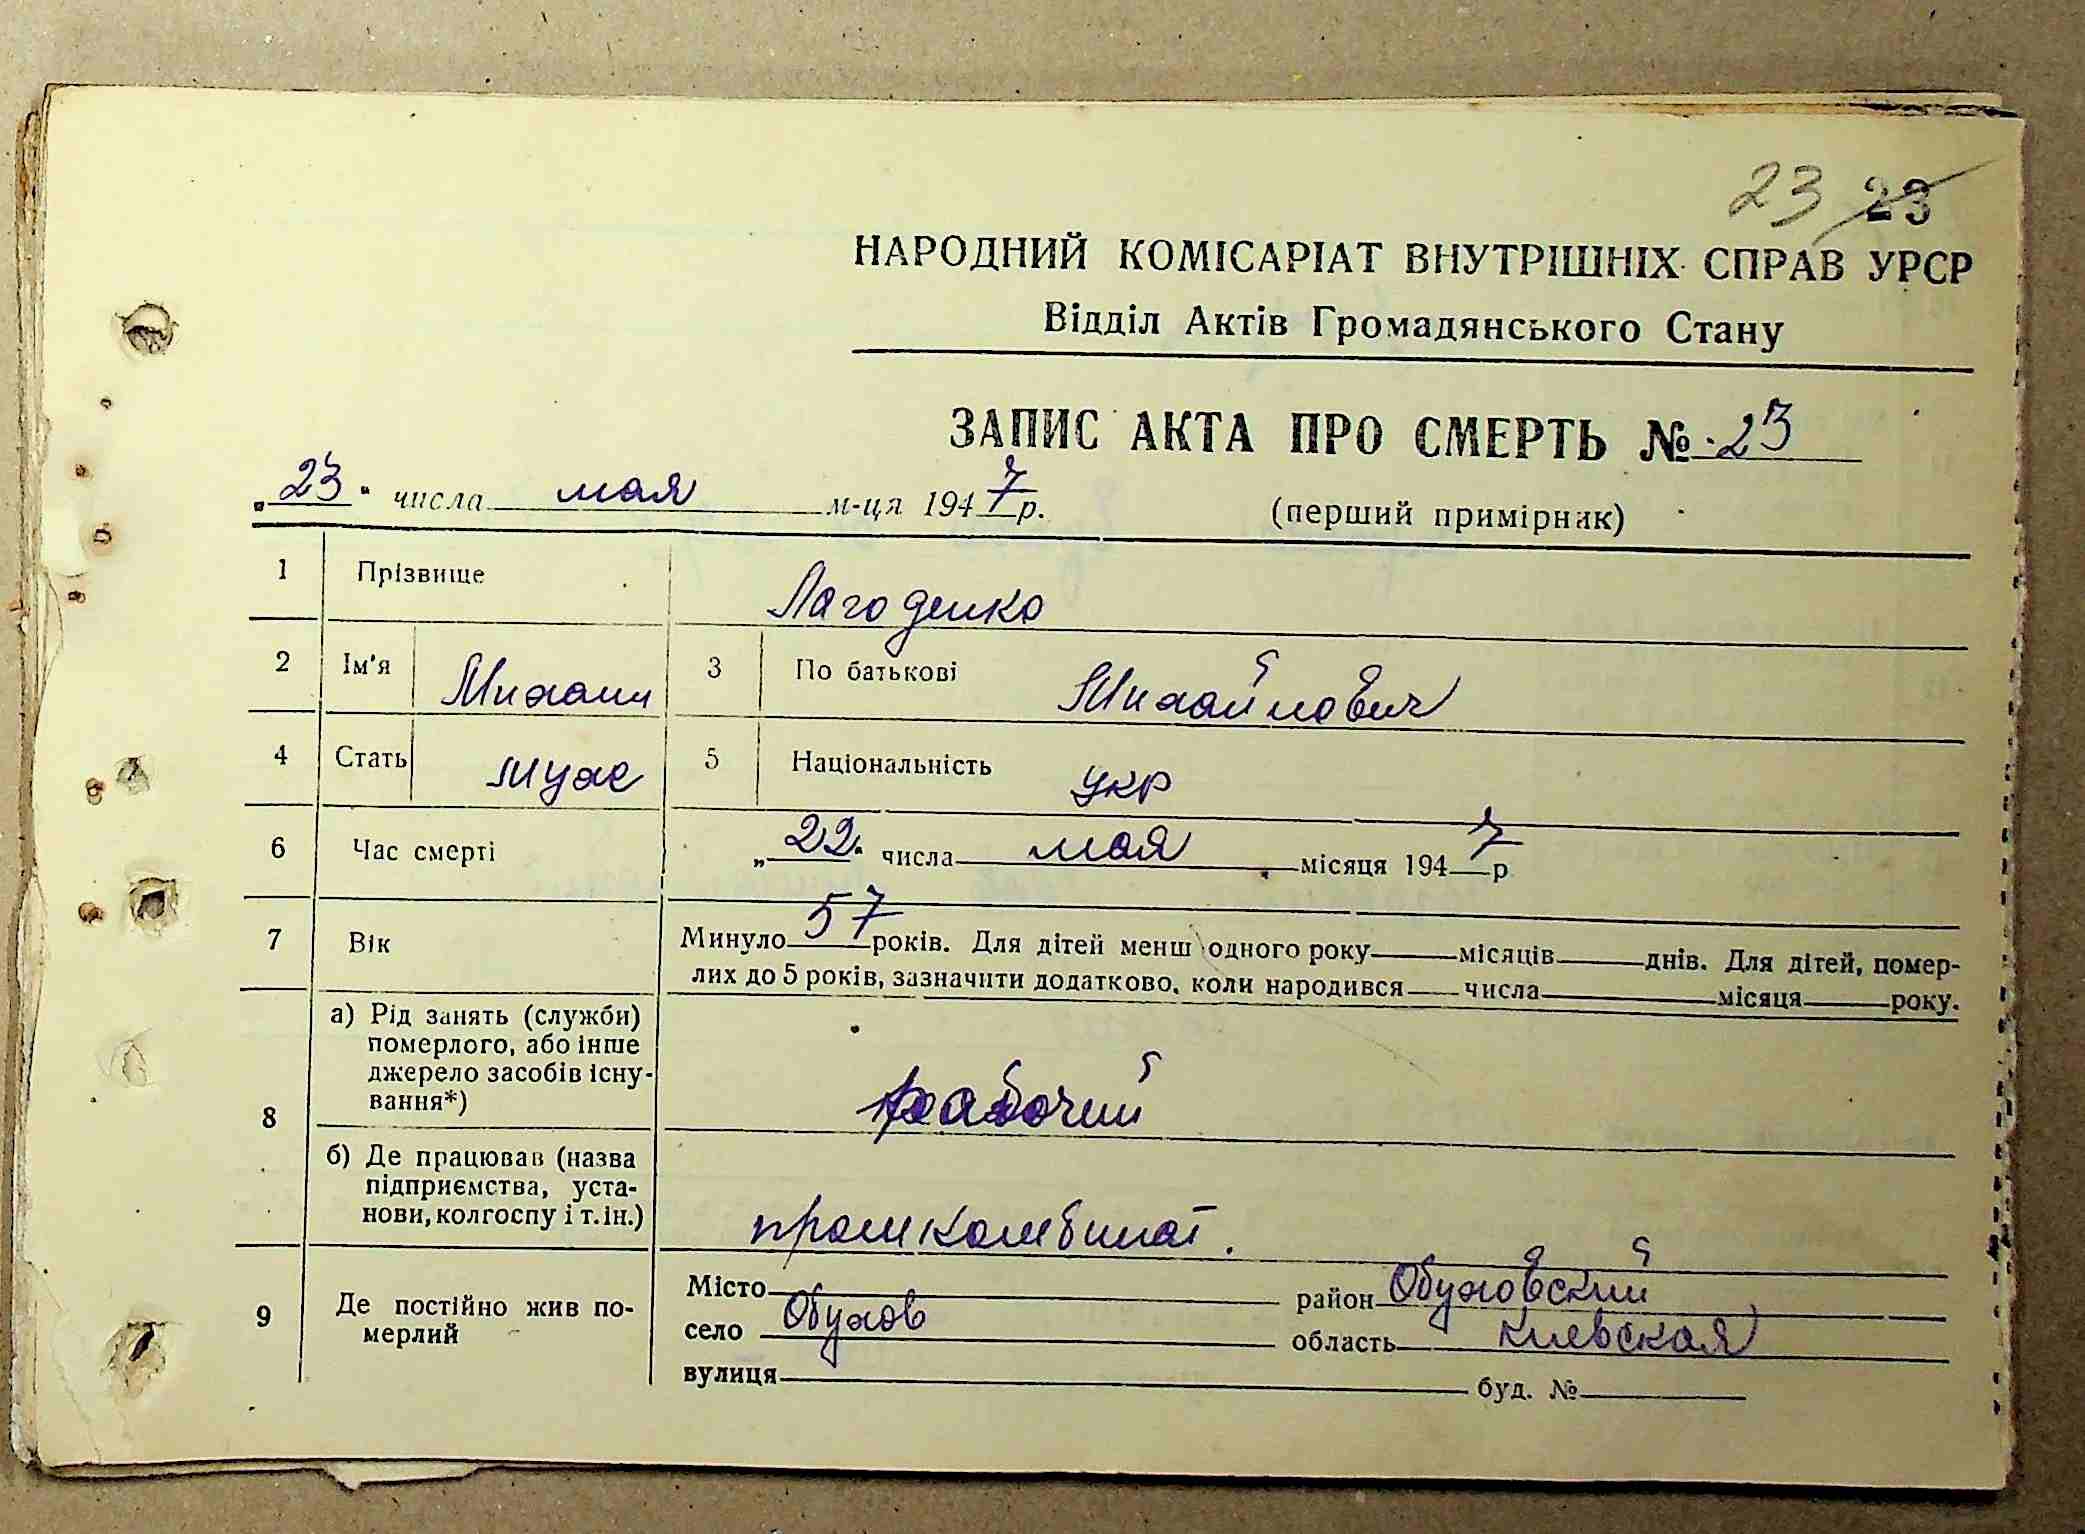 23 23
НАРОДНИЙ КОМІСАРІАТ ВНУТРІШНІХ СПРАВ УРСР
Відділ Актів Громадянського Стану
ЗАПИС АКТА ПРО СМЕРТЬ № 23
„23" числа мая м-ця 1947 р. (перший примірник)
1 Прізвище Лагоденко
2 Ім'я Михаил 3 По батькові Михайлович
4 Стать муж 5 Національність укр
6 Час смерті „22" числа мая місяця 1947 р
7 Вік Минуло 57 років. Для дітей менш одного року місяців днів. Для дітей, помер-
лих до 5 років, зазначити додатково, коли народився числа місяця року.
8 а) Рід занять (служби)
померлого, або інше
джерело засобів існу-
вання*) рабочий
б) Де працював (назва
підприємства, уста-
нови, колгоспу і т. ін.) промкомбинат.
9 Де постійно жив по-
мерлий
Місто район Обуховский
село Обухов область Киевская
вулиця буд. №